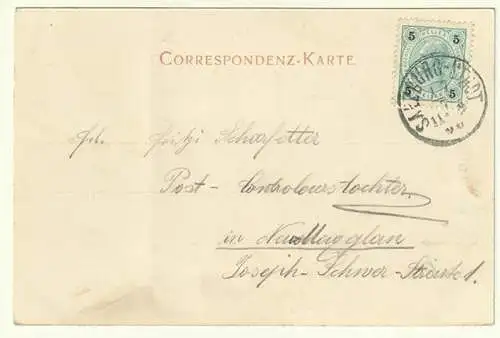 CORRESPONDENZ-KARTE.
5 5
5 5
SALZBURG-STADT
Frl. Fritzi Scharfetter
Post-Controlourstochter
in Neu Maxglan
Joseph-Schwer-Strasse 1.